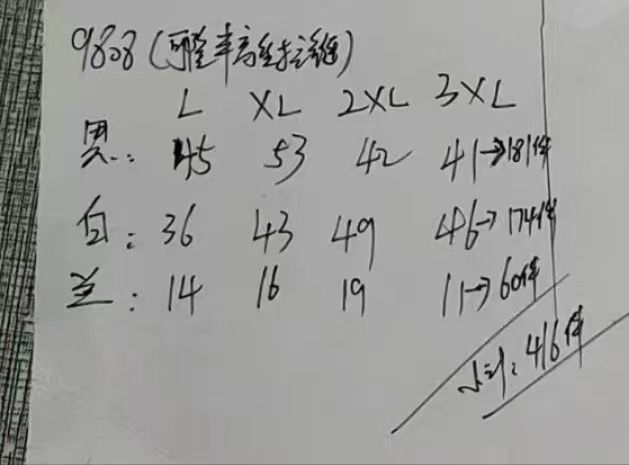 9808(半高
L XL 2XL 3XL
黑: 45 53 42 41→181件
白: 36 43 49 46→174件
兰: 14 16 19 11→60件
小计: 416件